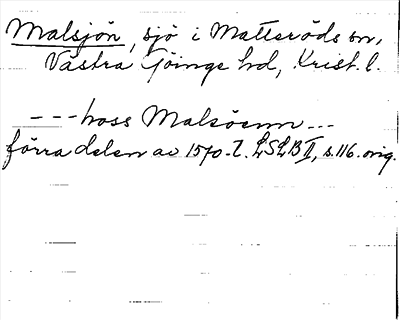 Malsjön, sjö i Matteröds sn,
Västra Göinge hd, Krist. l.
---hoss Malsöenn---
förra delen av 1570-t. LSLB II, s. 116. orig.